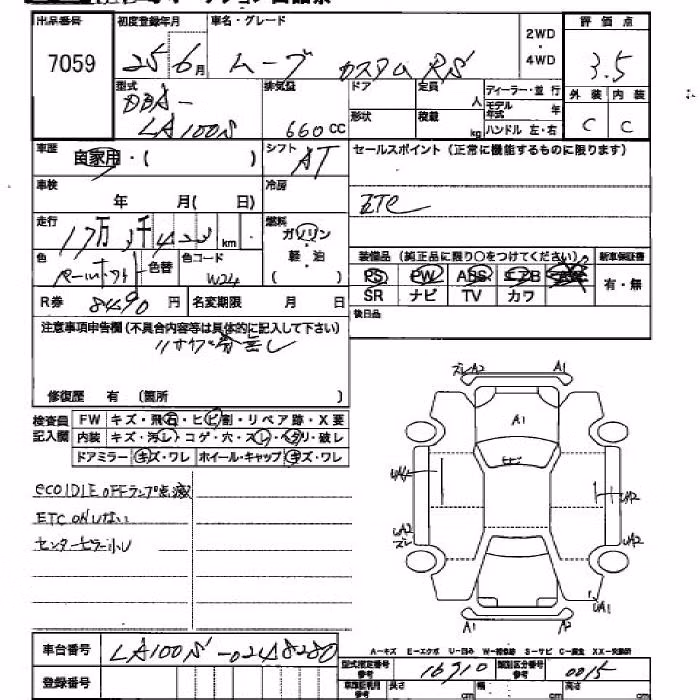 出品票
出品番号 初度登録年月 車名・グレード 2WD・4WD 評価点
7059 25年6月 ムーブ カスタム RS 3.5
型式 DBA-LA100S 排気量 660cc ドア 定員 人 ディーラー・並行
形状 積載 kg モデル年式 年 ハンドル 左・右
外装 内装
C C
車歴 自家用・( ) シフト AT セールスポイント(正常に機能するものに限ります)
車検 年 月( 日) 冷房
ETC
走行 17万 千422km 燃料 ガソリン・軽油( )
色 パールホワイト 色替 色コード W24
装備品(純正品に限り○をつけてください) 新車保証書
PS PW ABS エアB 有・無
SR ナビ TV カワ
R券 8490円 名変期限 月 日
後日品
注意事項申告欄(不具合内容等は具体的に記入して下さい)
リサイクル券無し
修復歴 有(箇所 )
検査員記入欄 FW キズ・飛石・ヒビ割・リペア跡・X要
内装 キズ・汚レ・コゲ・穴・スレ・ヘタリ・破レ
ドアミラー キズ・ワレ ホイール・キャップ キズ・ワレ
eco IDLE OFFランプ点滅
ETC ONしない
ズレA2 A1
A1
UA2
UA2
ズレ
UA2
UA1
A1 A2
A-キズ E-エクボ U-凹み W-補修跡 S-サビ C-腐食 XX-交換済
車台番号 LA100S-0248280
型式指定番号 参考 16910 類別区分番号 参考 0015
登録番号
長さ cm 幅 cm 高さ cm